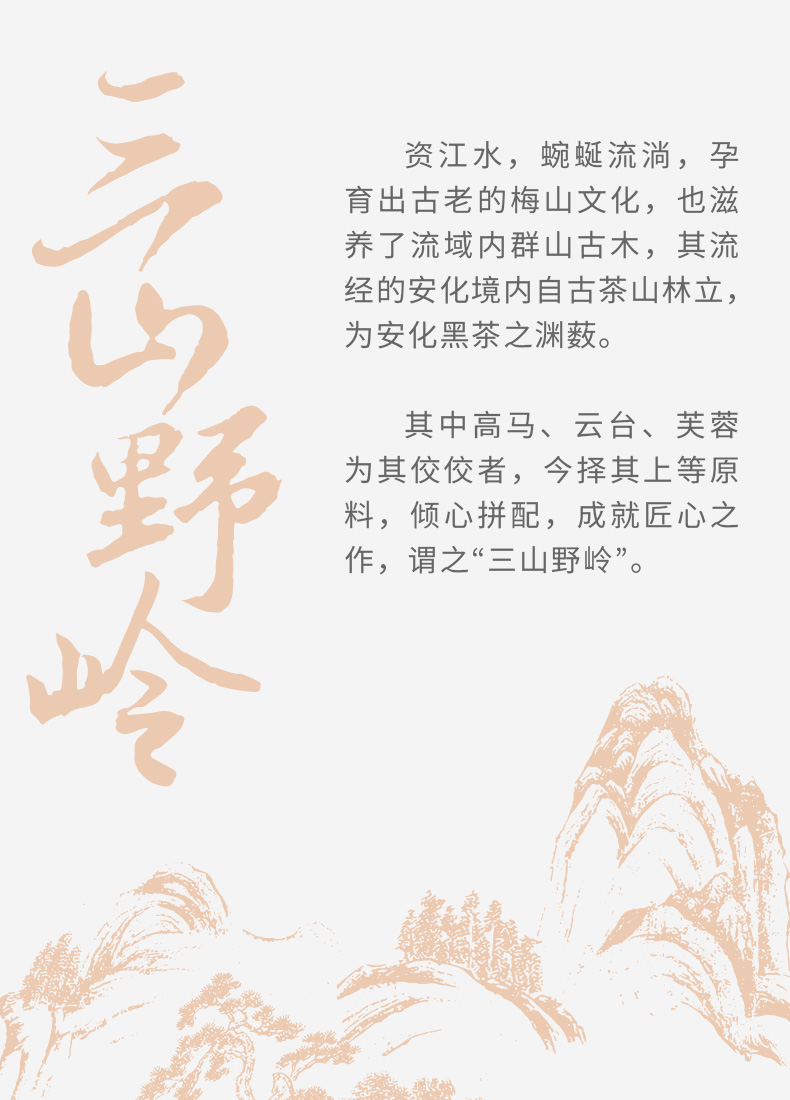 三山野岭
资江水，蜿蜒流淌，孕
育出古老的梅山文化，也滋
养了流域内群山古木，其流
经的安化境内自古茶山林立，
为安化黑茶之渊薮。
其中高马、云台、芙蓉
为其佼佼者，今择其上等原
料，倾心拼配，成就匠心之
作，谓之“三山野岭”。